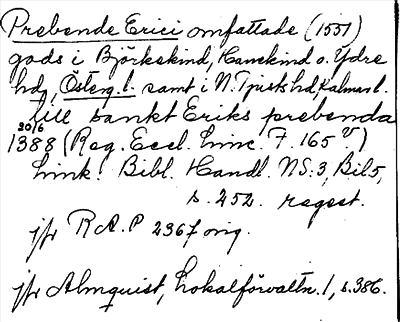 Prebende Erici omfattade (1551)
gods i Björkekind, Hanekind o. Ydre
hd, Österg. l. samt i N. Tjusts hd, Kalmar l.
till sankt Eriks prebenda
20/6
1388 (Reg. Eccl. Linc. F. 165 v.)
Link. Bibl. Handl. NS:3, Bil 5,
s. 252. regest.
jfr R.A.P 2367 orig.
jfr Almquist, Lokalförvaltn. 1, s. 386.